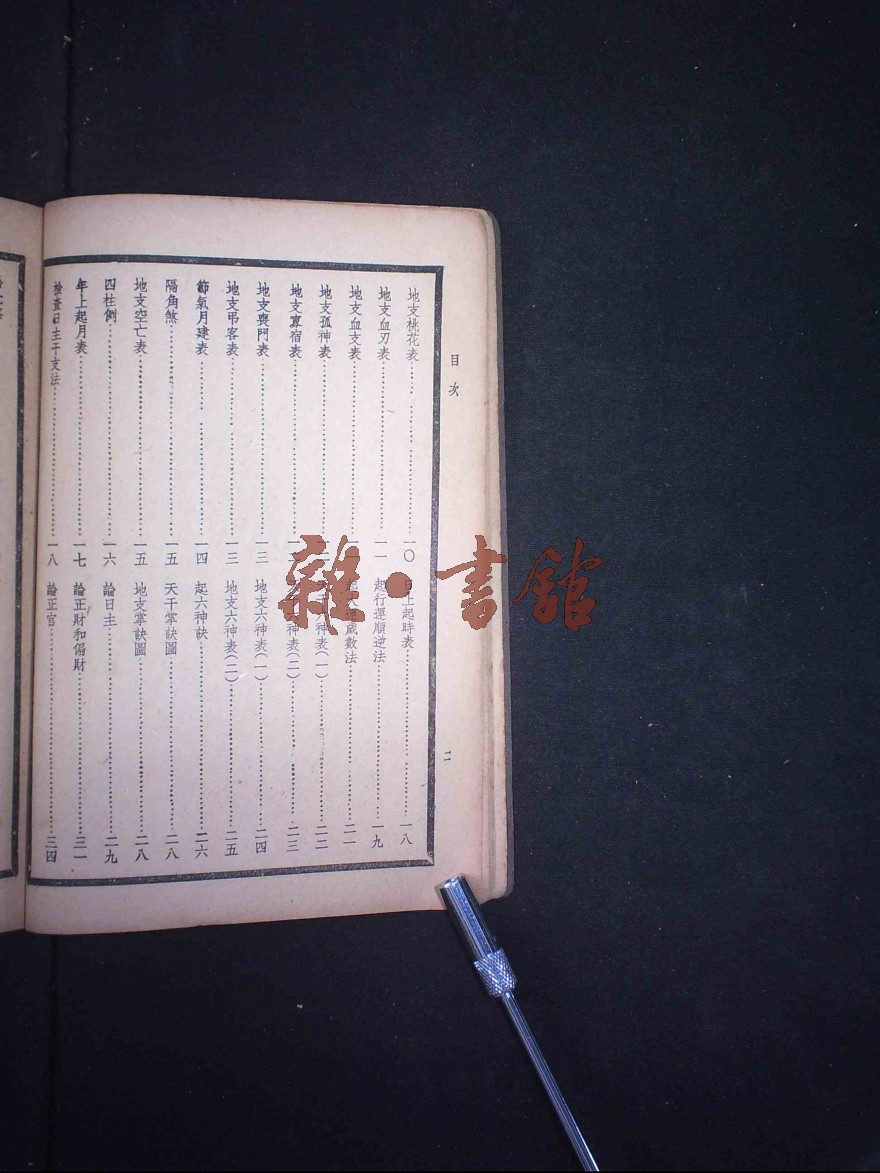 目次
二
地支桃花表 一〇
地支血刃表 一一
地支血支表
地支孤神表
地支寡宿表
地支喪門表 一三
地支弔客表 一三
節氣月建表 一四
隔角煞 一五
地支空亡表 一五
四柱例 一六
年上起月表 一七
檢查日主干支法 一八
日上起時表 一八
起行運順逆法 一九
歲數法 二一
神表(一) 二二
神表(二) 二三
地支六神表(一) 二四
地支六神表(二) 二五
起六神訣 二六
天干掌訣圖 二八
地支掌訣圖 二八
論日主 二九
論正財和偏財 三一
論正官 三四
雜·書館